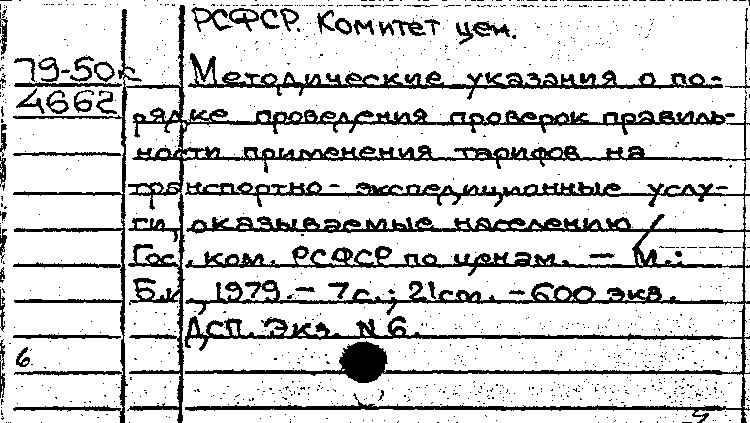 РСФСР. Комитет цен.
79-50к
4662
Методические указания о по-
рядке проведения проверок правиль-
ности применения тарифов на
транспортно-экспедиционные услу-
ги, оказываемые населению /
Гос. ком. РСФСР по ценам. — М.:
Б.и., 1979. - 7с.; 21см. - 600 экз.
ДСП. Экз. N 6.
6